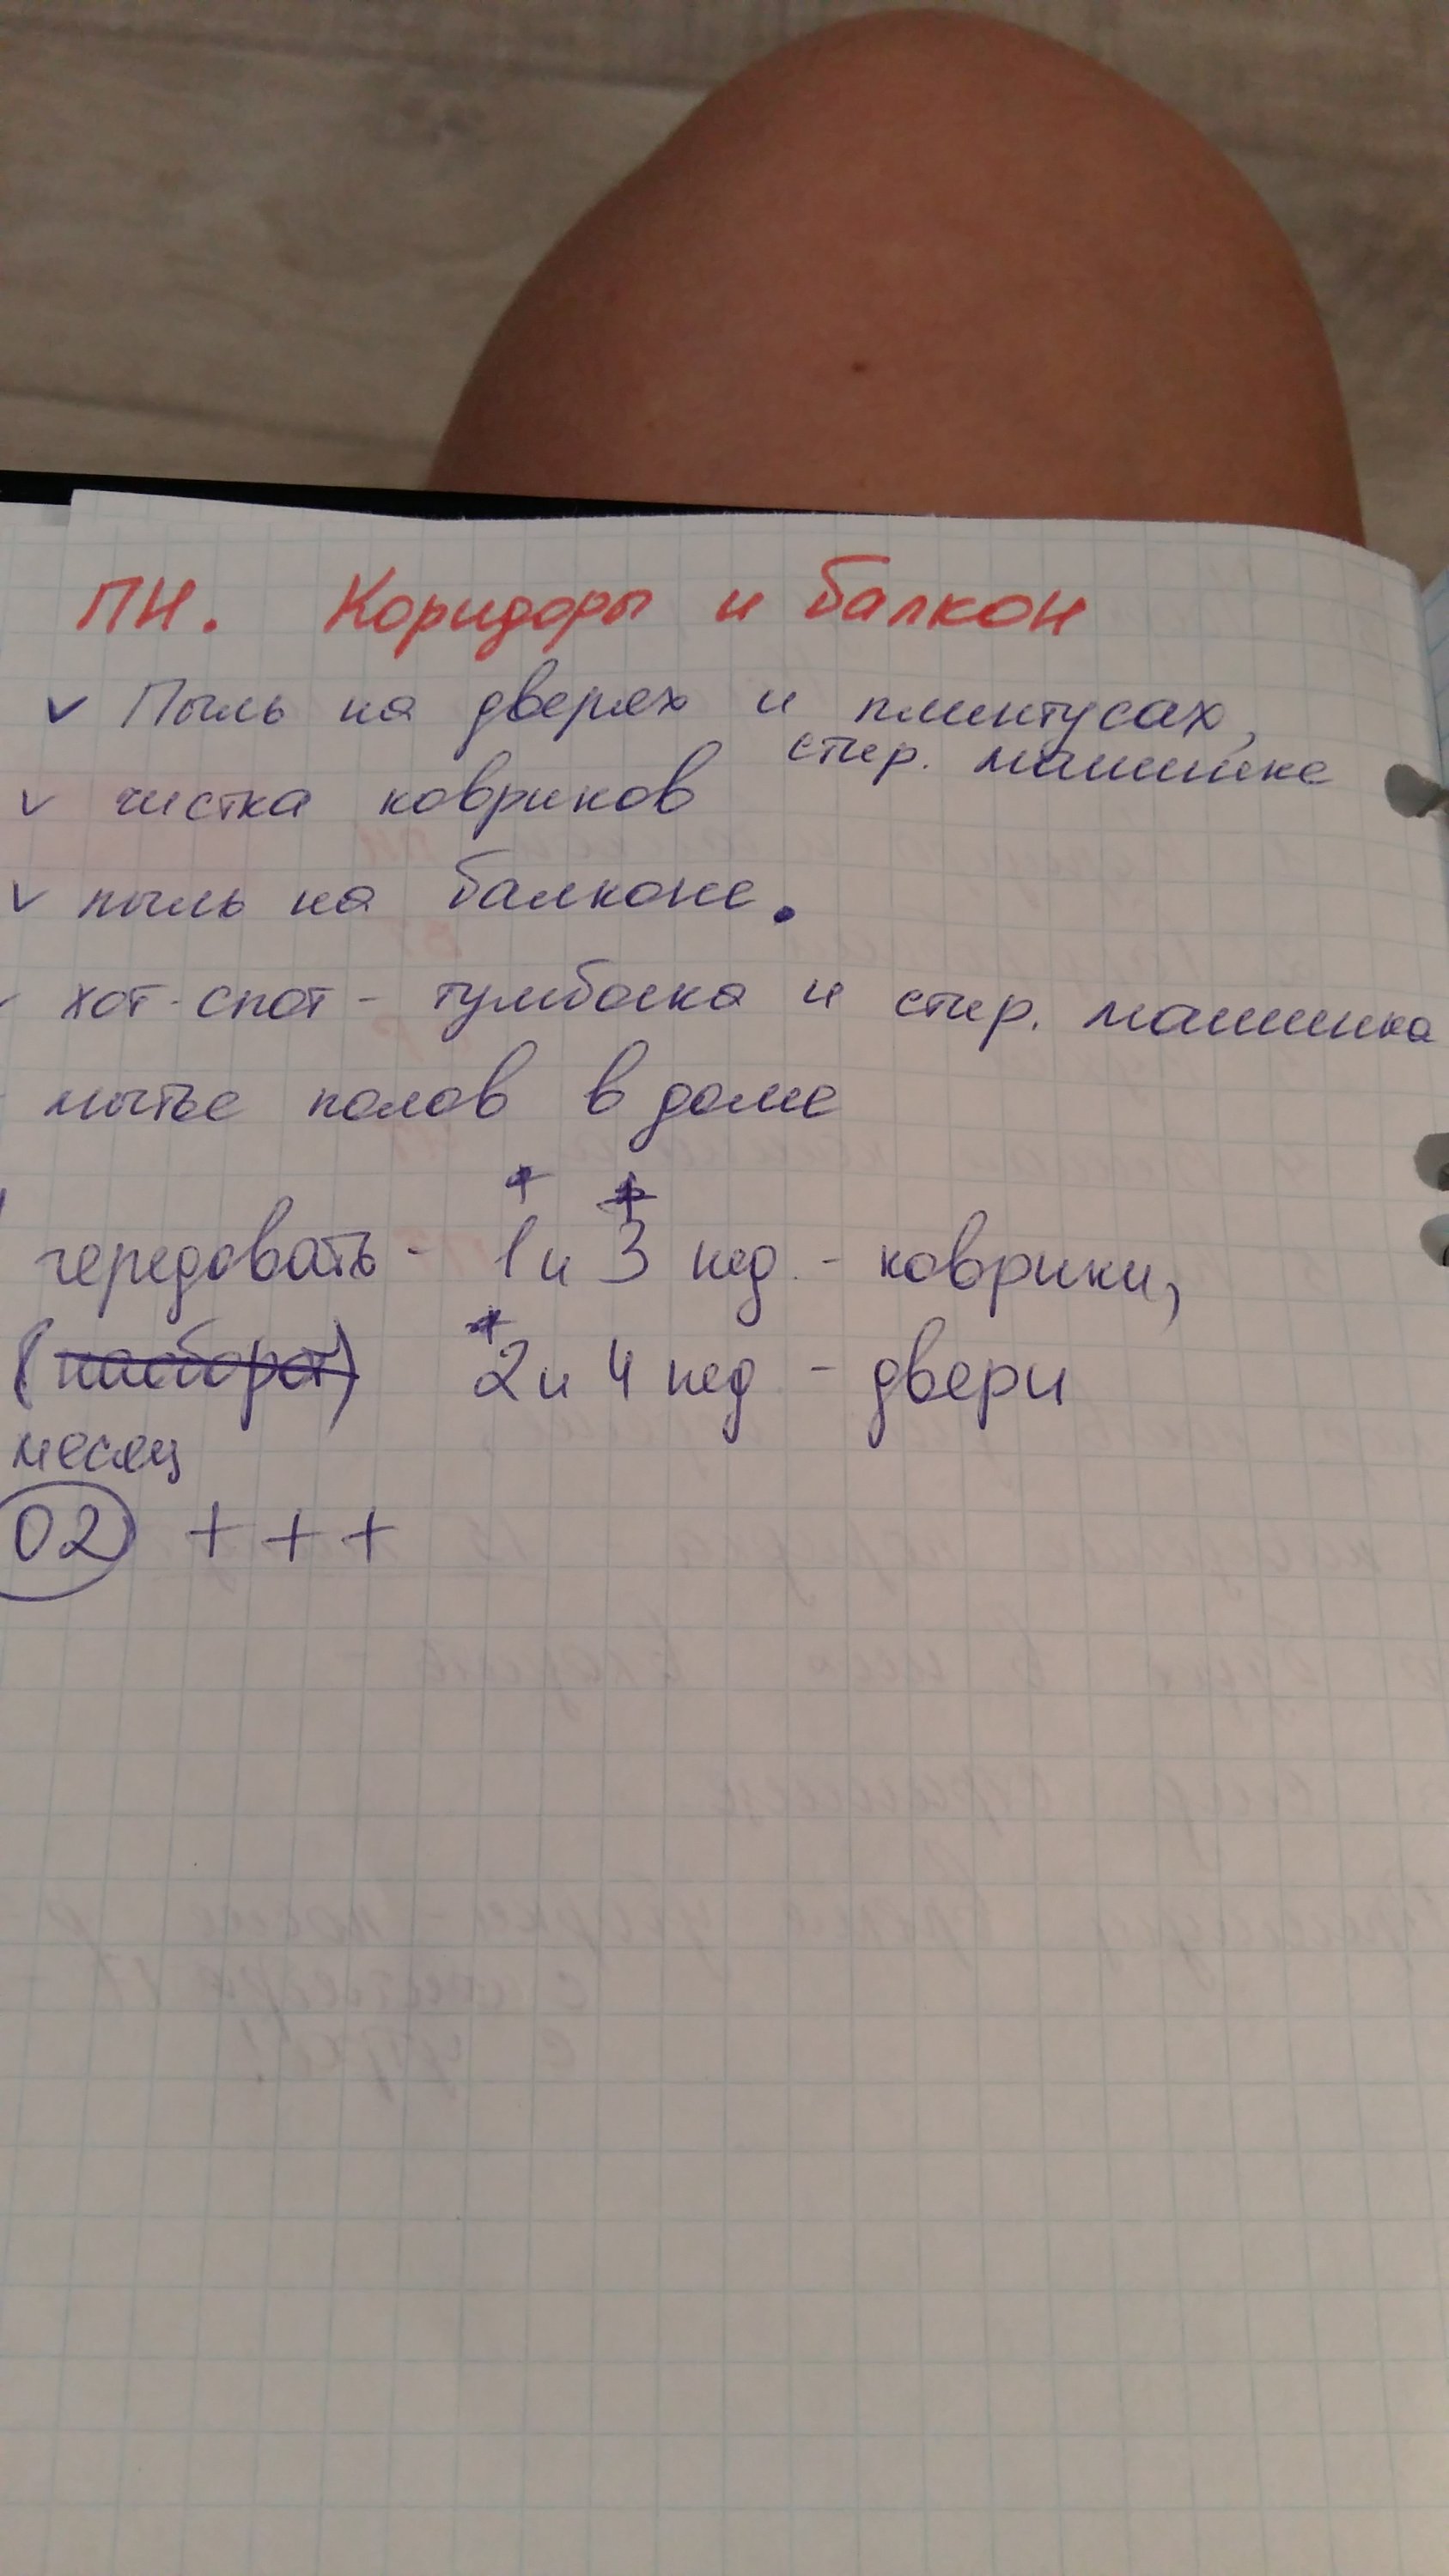 ПН. Коридоры и балкон
v Пыль на дверях и плинтусах,
стир. машинке
v чистка ковриков
v пыль на балконе.
v хот-спот - тумбочка и стир. машинка
- мытье полов в доме
чередовать - 1 и 3 нед. - коврики,
(наоборот) 2 и 4 нед - двери
месяц
02 + + +